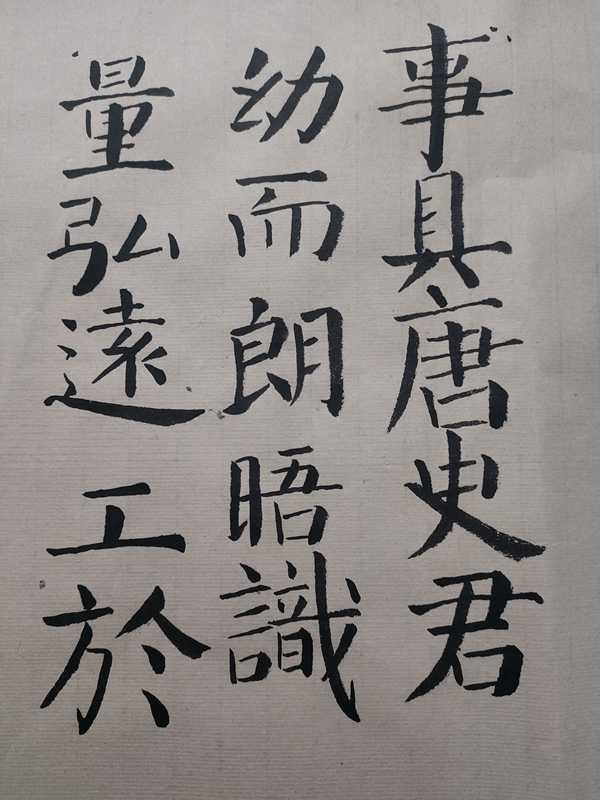 事具唐史君
幼而朗晤識
量弘遠工於